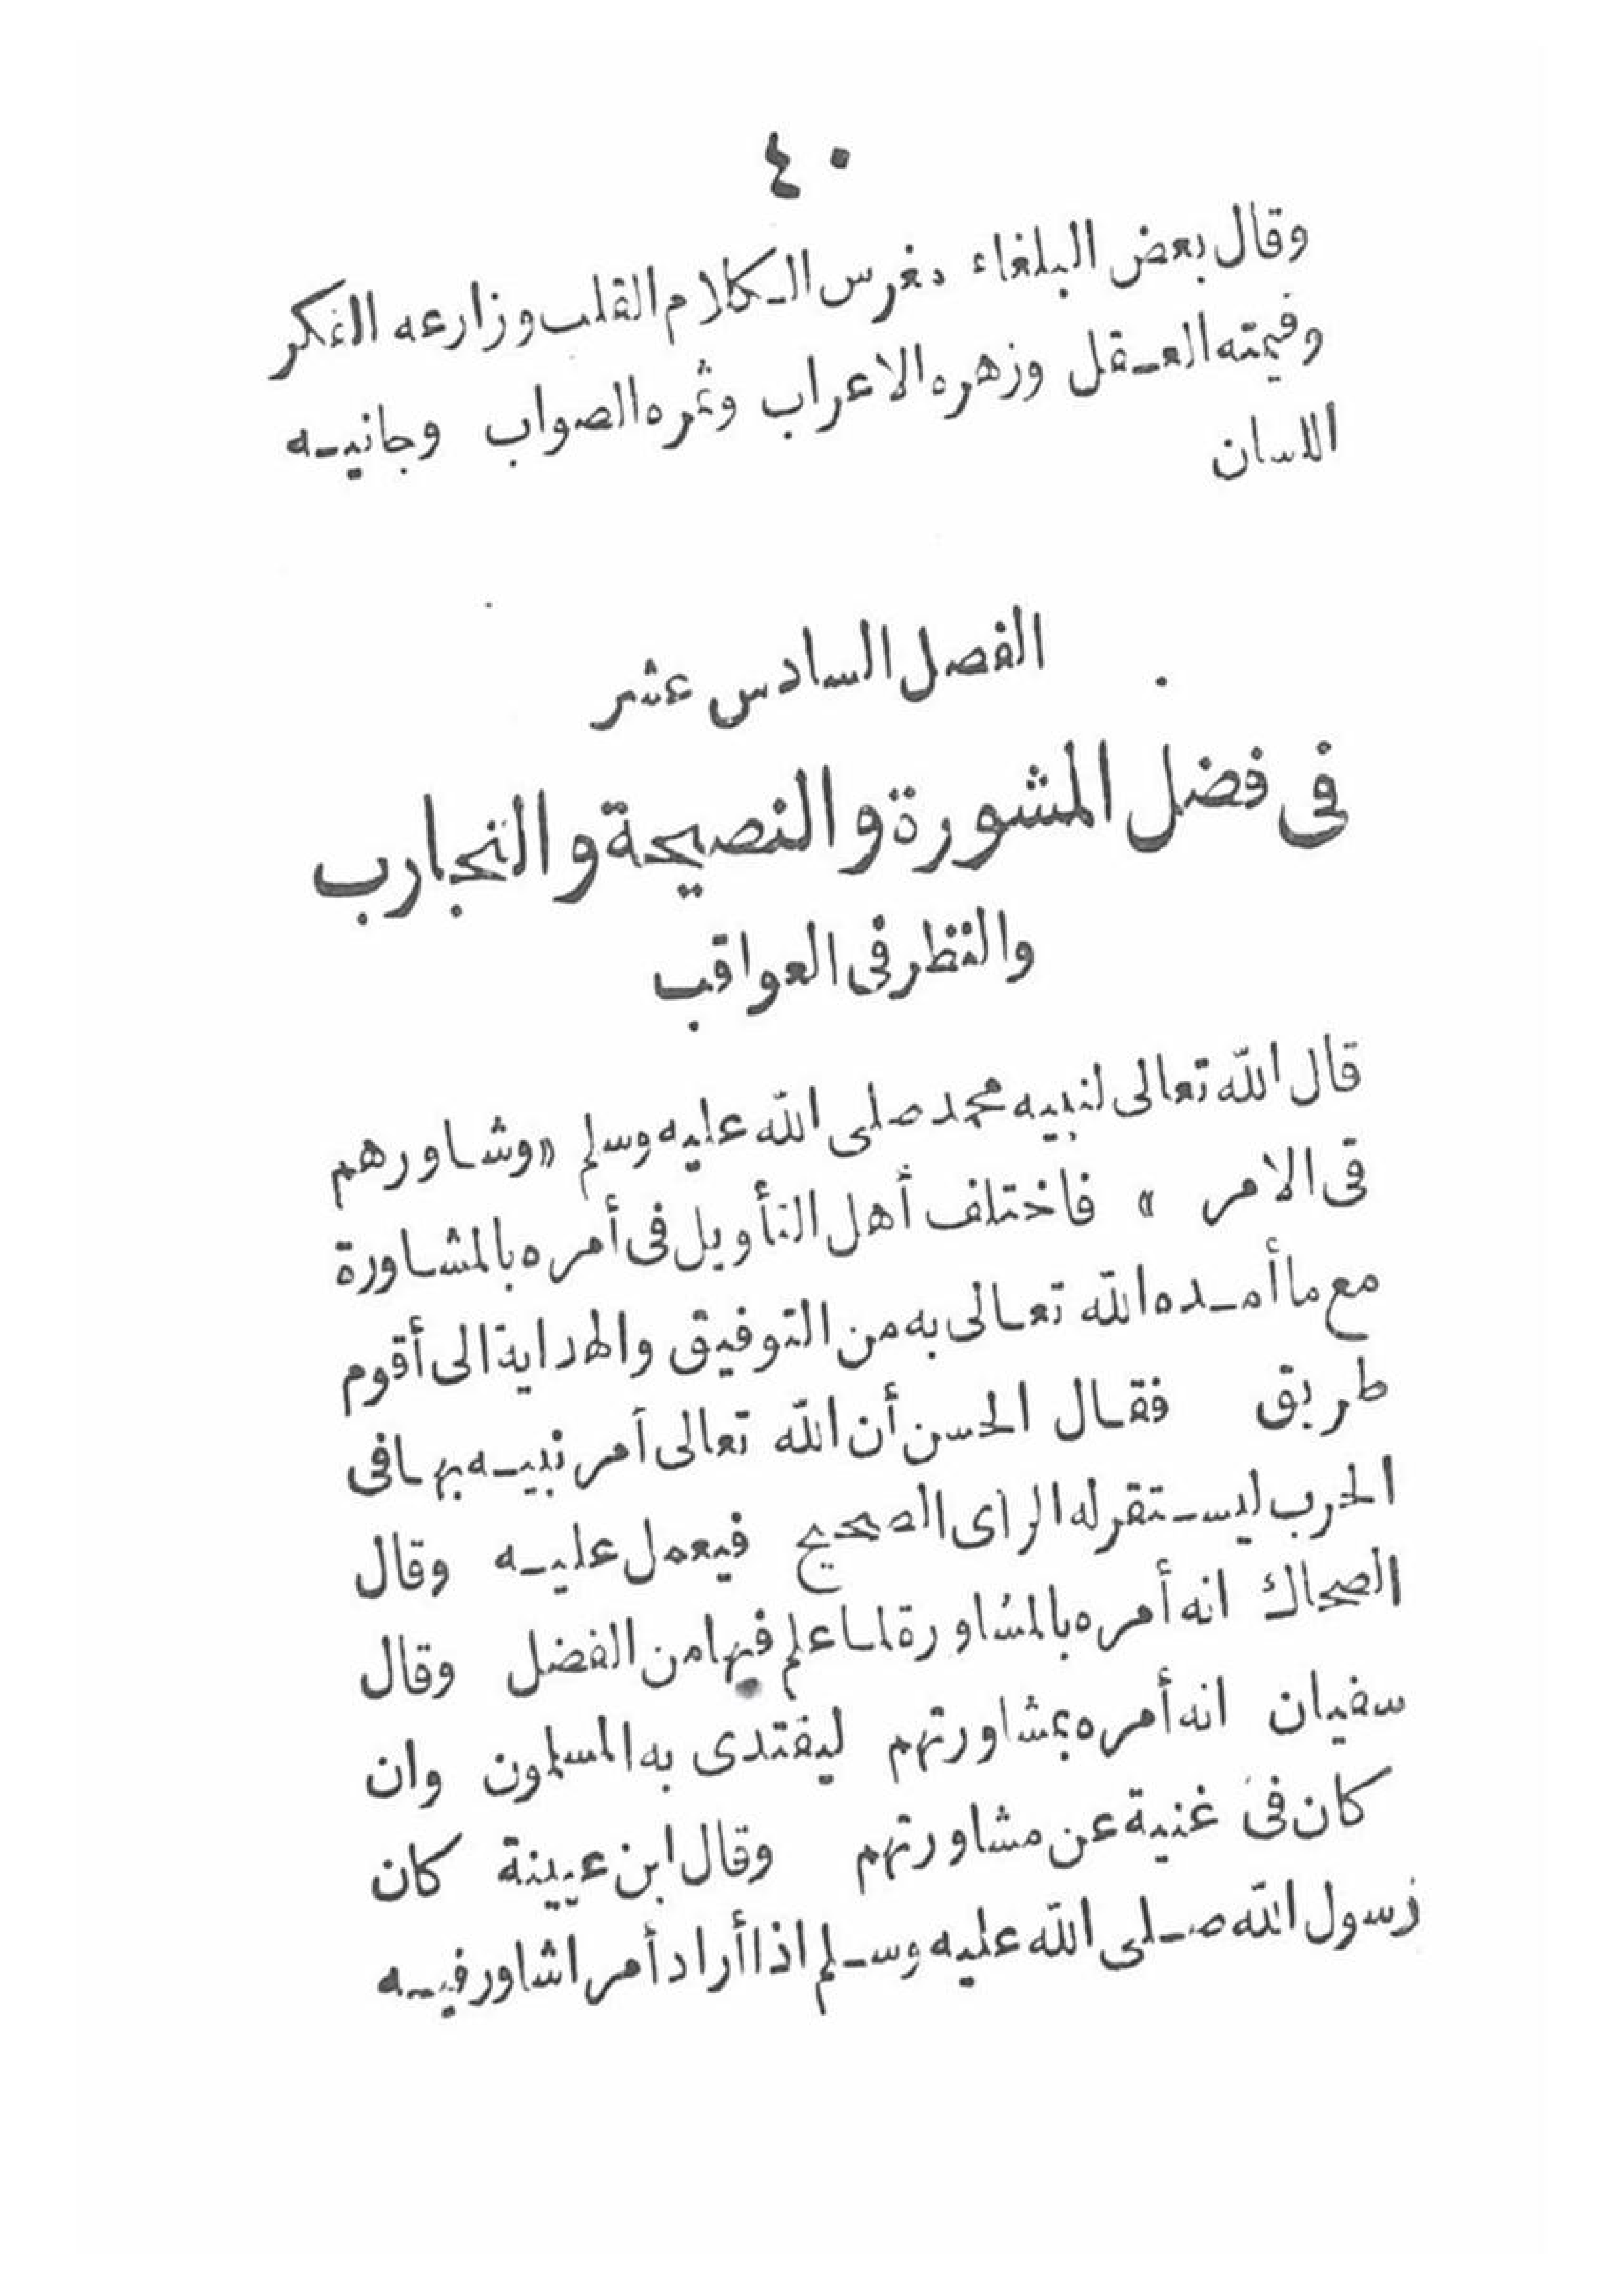 ٤٠
وقال بعض البلغاء مغرس الكلام القلب وزارعه الفكر
وقيمته العقل وزهره الاعراب وثمره الصواب وجانيه
اللسان
الفصل السادس عشر
فى فضل المشورة والنصيحة والتجارب
والنظر فى العواقب
قال الله تعالى لنبيه محمد صلى الله عليه وسلم «وشاورهم
فى الامر» فاختلف أهل التأويل فى أمره بالمشاورة
مع ما أمده الله تعالى به من التوفيق والهداية الى أقوم
طريق فقال الحسن أن الله تعالى أمر نبيه بها فى
الحرب ليستقر له الرأى الصحيح فيعمل عليه وقال
الضحاك انه أمره بالمشاورة لما علم فيها من الفضل وقال
سفيان انه أمره بمشاورتهم ليقتدى به المسلمون وان
كان فى غنية عن مشاورتهم وقال ابن عيينة كان
رسول الله صلى الله عليه وسلم اذا أراد أمرا شاور فيه